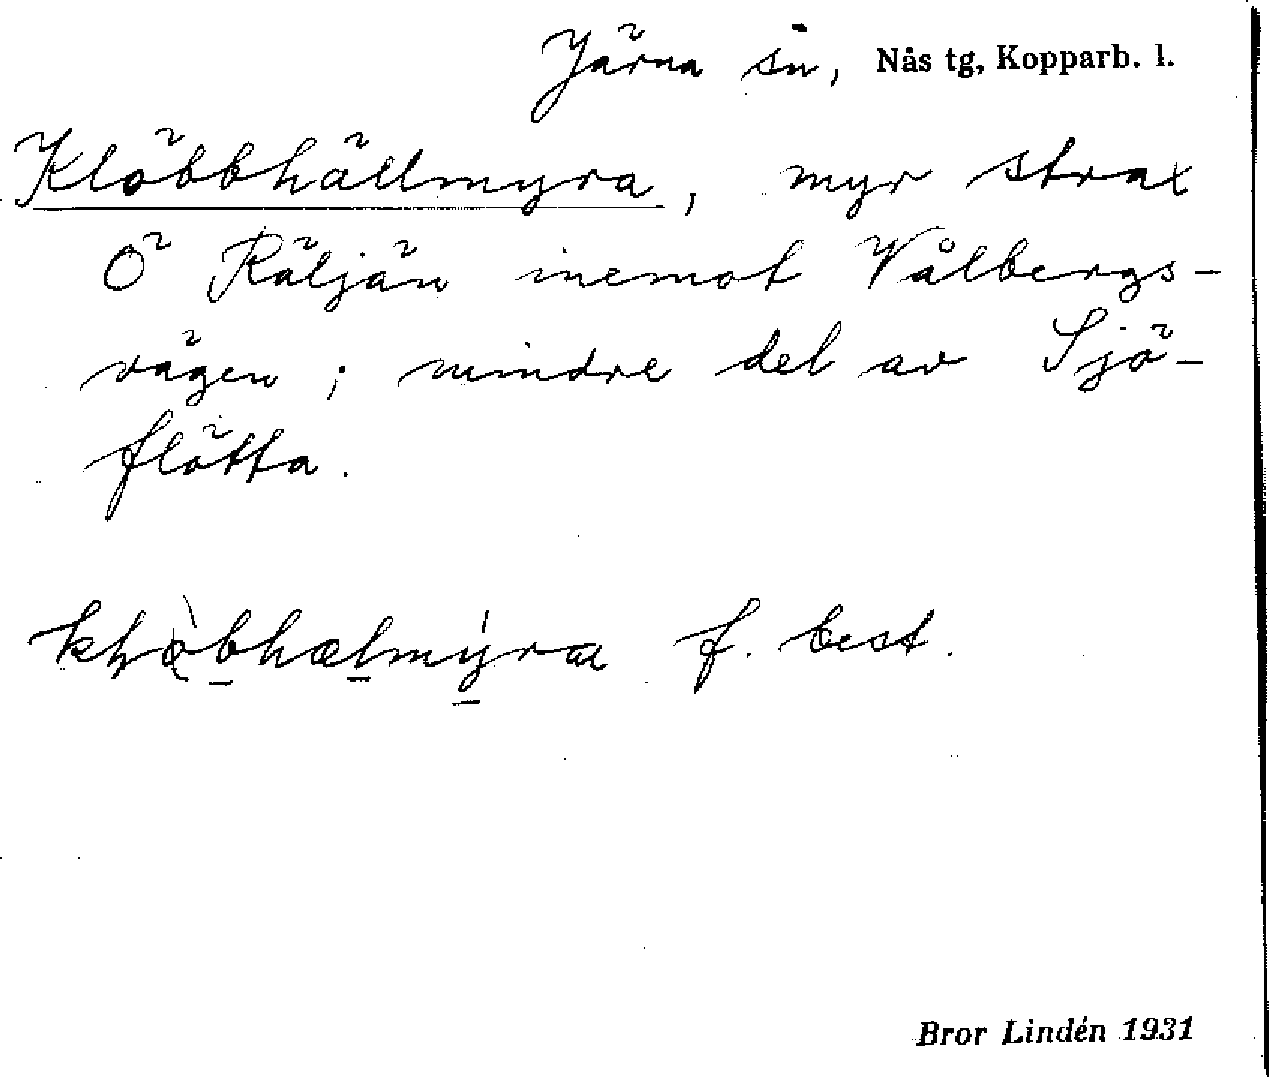 Järna sn, Nås tg, Kopparb. l.
Klöbbhällmyra, myr strax
Ö Räljän inemot Vålbergs-
vägen; mindre del av Sjö-
flötta.
f. best.
Bror Lindén 1931